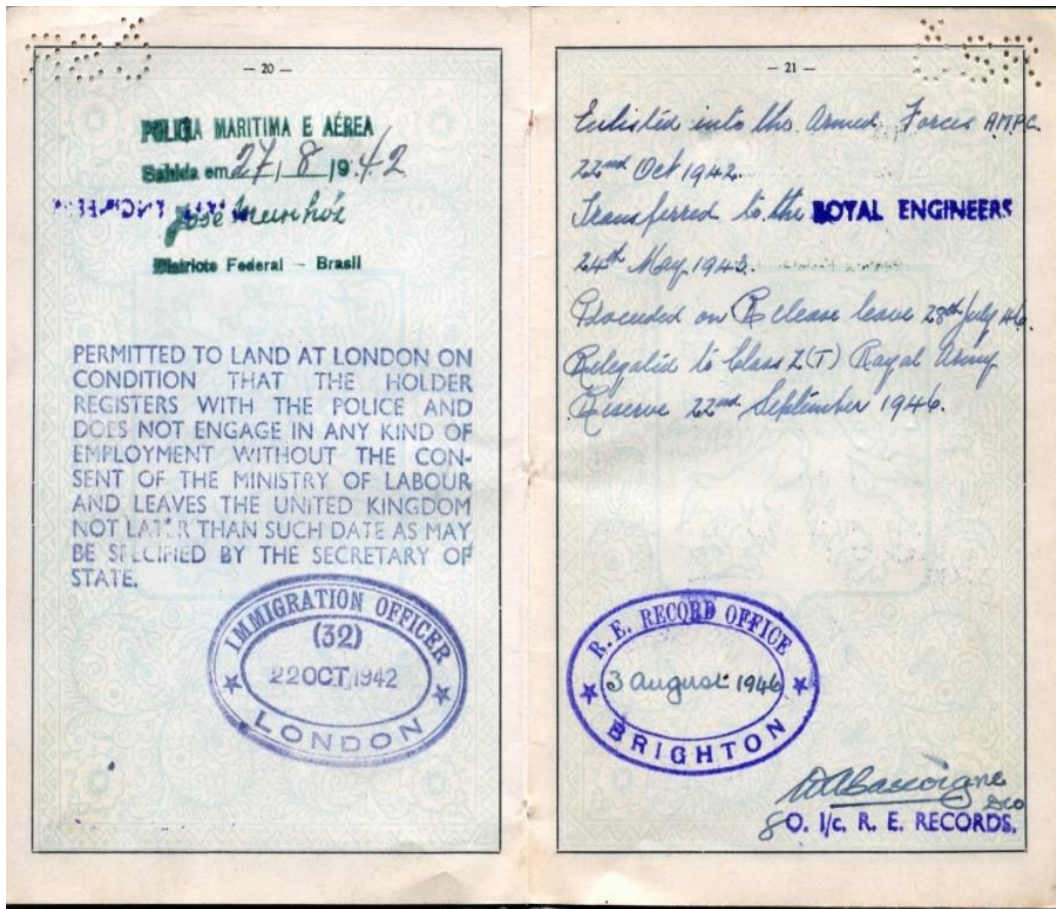 — 20 —
POLICIA MARITIMA E AÉREA
Sahida em 27 / 8 / 19 42
José
Districto Federal — Brasil
PERMITTED TO LAND AT LONDON ON
CONDITION THAT THE HOLDER
REGISTERS WITH THE POLICE AND
DOES NOT ENGAGE IN ANY KIND OF
EMPLOYMENT WITHOUT THE CON-
SENT OF THE MINISTRY OF LABOUR
AND LEAVES THE UNITED KINGDOM
NOT LATER THAN SUCH DATE AS MAY
BE SPECIFIED BY THE SECRETARY OF
STATE.
IMMIGRATION OFFICER
(32)
22 OCT 1942
LONDON
— 21 —
Enlisted into the Armed Forces A.M.P.C.
22nd Oct 1942.
Transferred to the ROYAL ENGINEERS
24th May 1943.
Proceeded on Release leave 28th July 46.
Relegated to Class Z(T) Royal Army
Reserve 22nd September 1946.
R. E. RECORD OFFICE
3 August 1946
BRIGHTON
O. I/c. R. E. RECORDS.